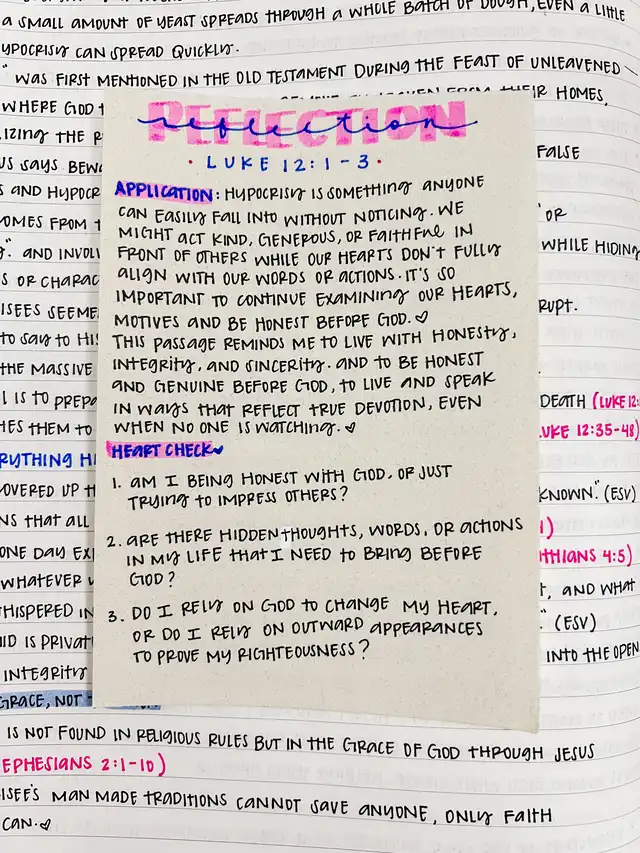 A SMALL AMOUNT OF YEAST SPREADS THROUGH A WHOLE BATCH OF DOUGH, EVEN A LITTLE
HYPOCRISY CAN SPREAD QUICKLY.
" WAS FIRST MENTIONED IN THE OLD TESTAMENT DURING THE FEAST OF UNLEAVENED
WHERE GOD THEIR HOMES,
THE
SAYS FALSE
AND "OR
FROM WHILE HIDING
AND
OR
RUPT.
TO SAY TO
THE MASSIVE
IS TO DEATH (LUKE 12:
THEM TO LUKE 12:35-48)
COVERED UP KNOWN." (ESV)
THAT ALL
ONE DAY THIANS 4:5)
WHATEVER AND WHAT
WHISPERED IN " (ESV)
IS INTO THE OPEN
INTEGRITY
GRACE, NOT
REFLECTION
reflection
• LUKE 12:1-3 •
APPLICATION: HYPOCRISY IS SOMETHING ANYONE
CAN EASILY FALL INTO WITHOUT NOTICING. WE
MIGHT ACT KIND, GENEROUS, OR FAITHFUL IN
FRONT OF OTHERS WHILE OUR HEARTS DON'T FULLY
ALIGN WITH OUR WORDS OR ACTIONS. IT'S SO
IMPORTANT TO CONTINUE EXAMINING OUR HEARTS,
MOTIVES AND BE HONEST BEFORE GOD. ♡
THIS PASSAGE REMINDS ME TO LIVE WITH HONESTY,
INTEGRITY, AND SINCERITY. AND TO BE HONEST
AND GENUINE BEFORE GOD, TO LIVE AND SPEAK
IN WAYS THAT REFLECT TRUE DEVOTION, EVEN
WHEN NO ONE IS WATCHING. ♡
HEART CHECK ♥
1. AM I BEING HONEST WITH GOD, OR JUST
TRYING TO IMPRESS OTHERS?
2. ARE THERE HIDDEN THOUGHTS, WORDS, OR ACTIONS
IN MY LIFE THAT I NEED TO BRING BEFORE
GOD?
3. DO I RELY ON GOD TO CHANGE MY HEART,
OR DO I RELY ON OUTWARD APPEARANCES
TO PROVE MY RIGHTEOUSNESS?
IS NOT FOUND IN RELIGIOUS RULES BUT IN THE GRACE OF GOD THROUGH JESUS
EPHESIANS 2:1-10)
ISEE'S MAN MADE TRADITIONS CANNOT SAVE ANYONE, ONLY FAITH
CAN. ♡